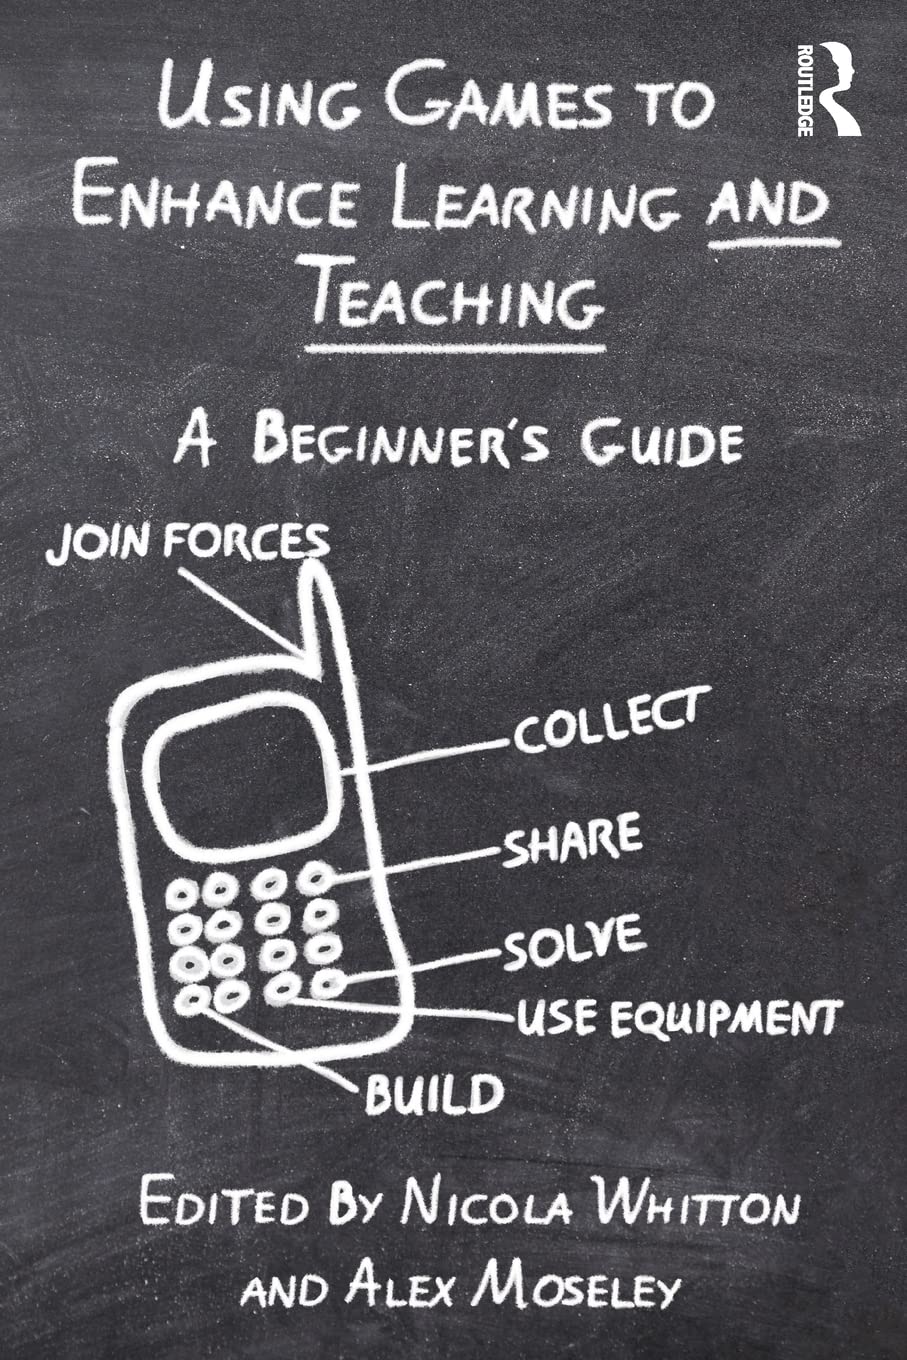 USING GAMES TO
ROUTLEDGE
ENHANCE LEARNING AND
TEACHING
A BEGINNER'S GUIDE
JOIN FORCES
COLLECT
SHARE
SOLVE
USE EQUIPMENT
BUILD
EDITED BY NICOLA WHITTON
AND ALEX MOSELEY